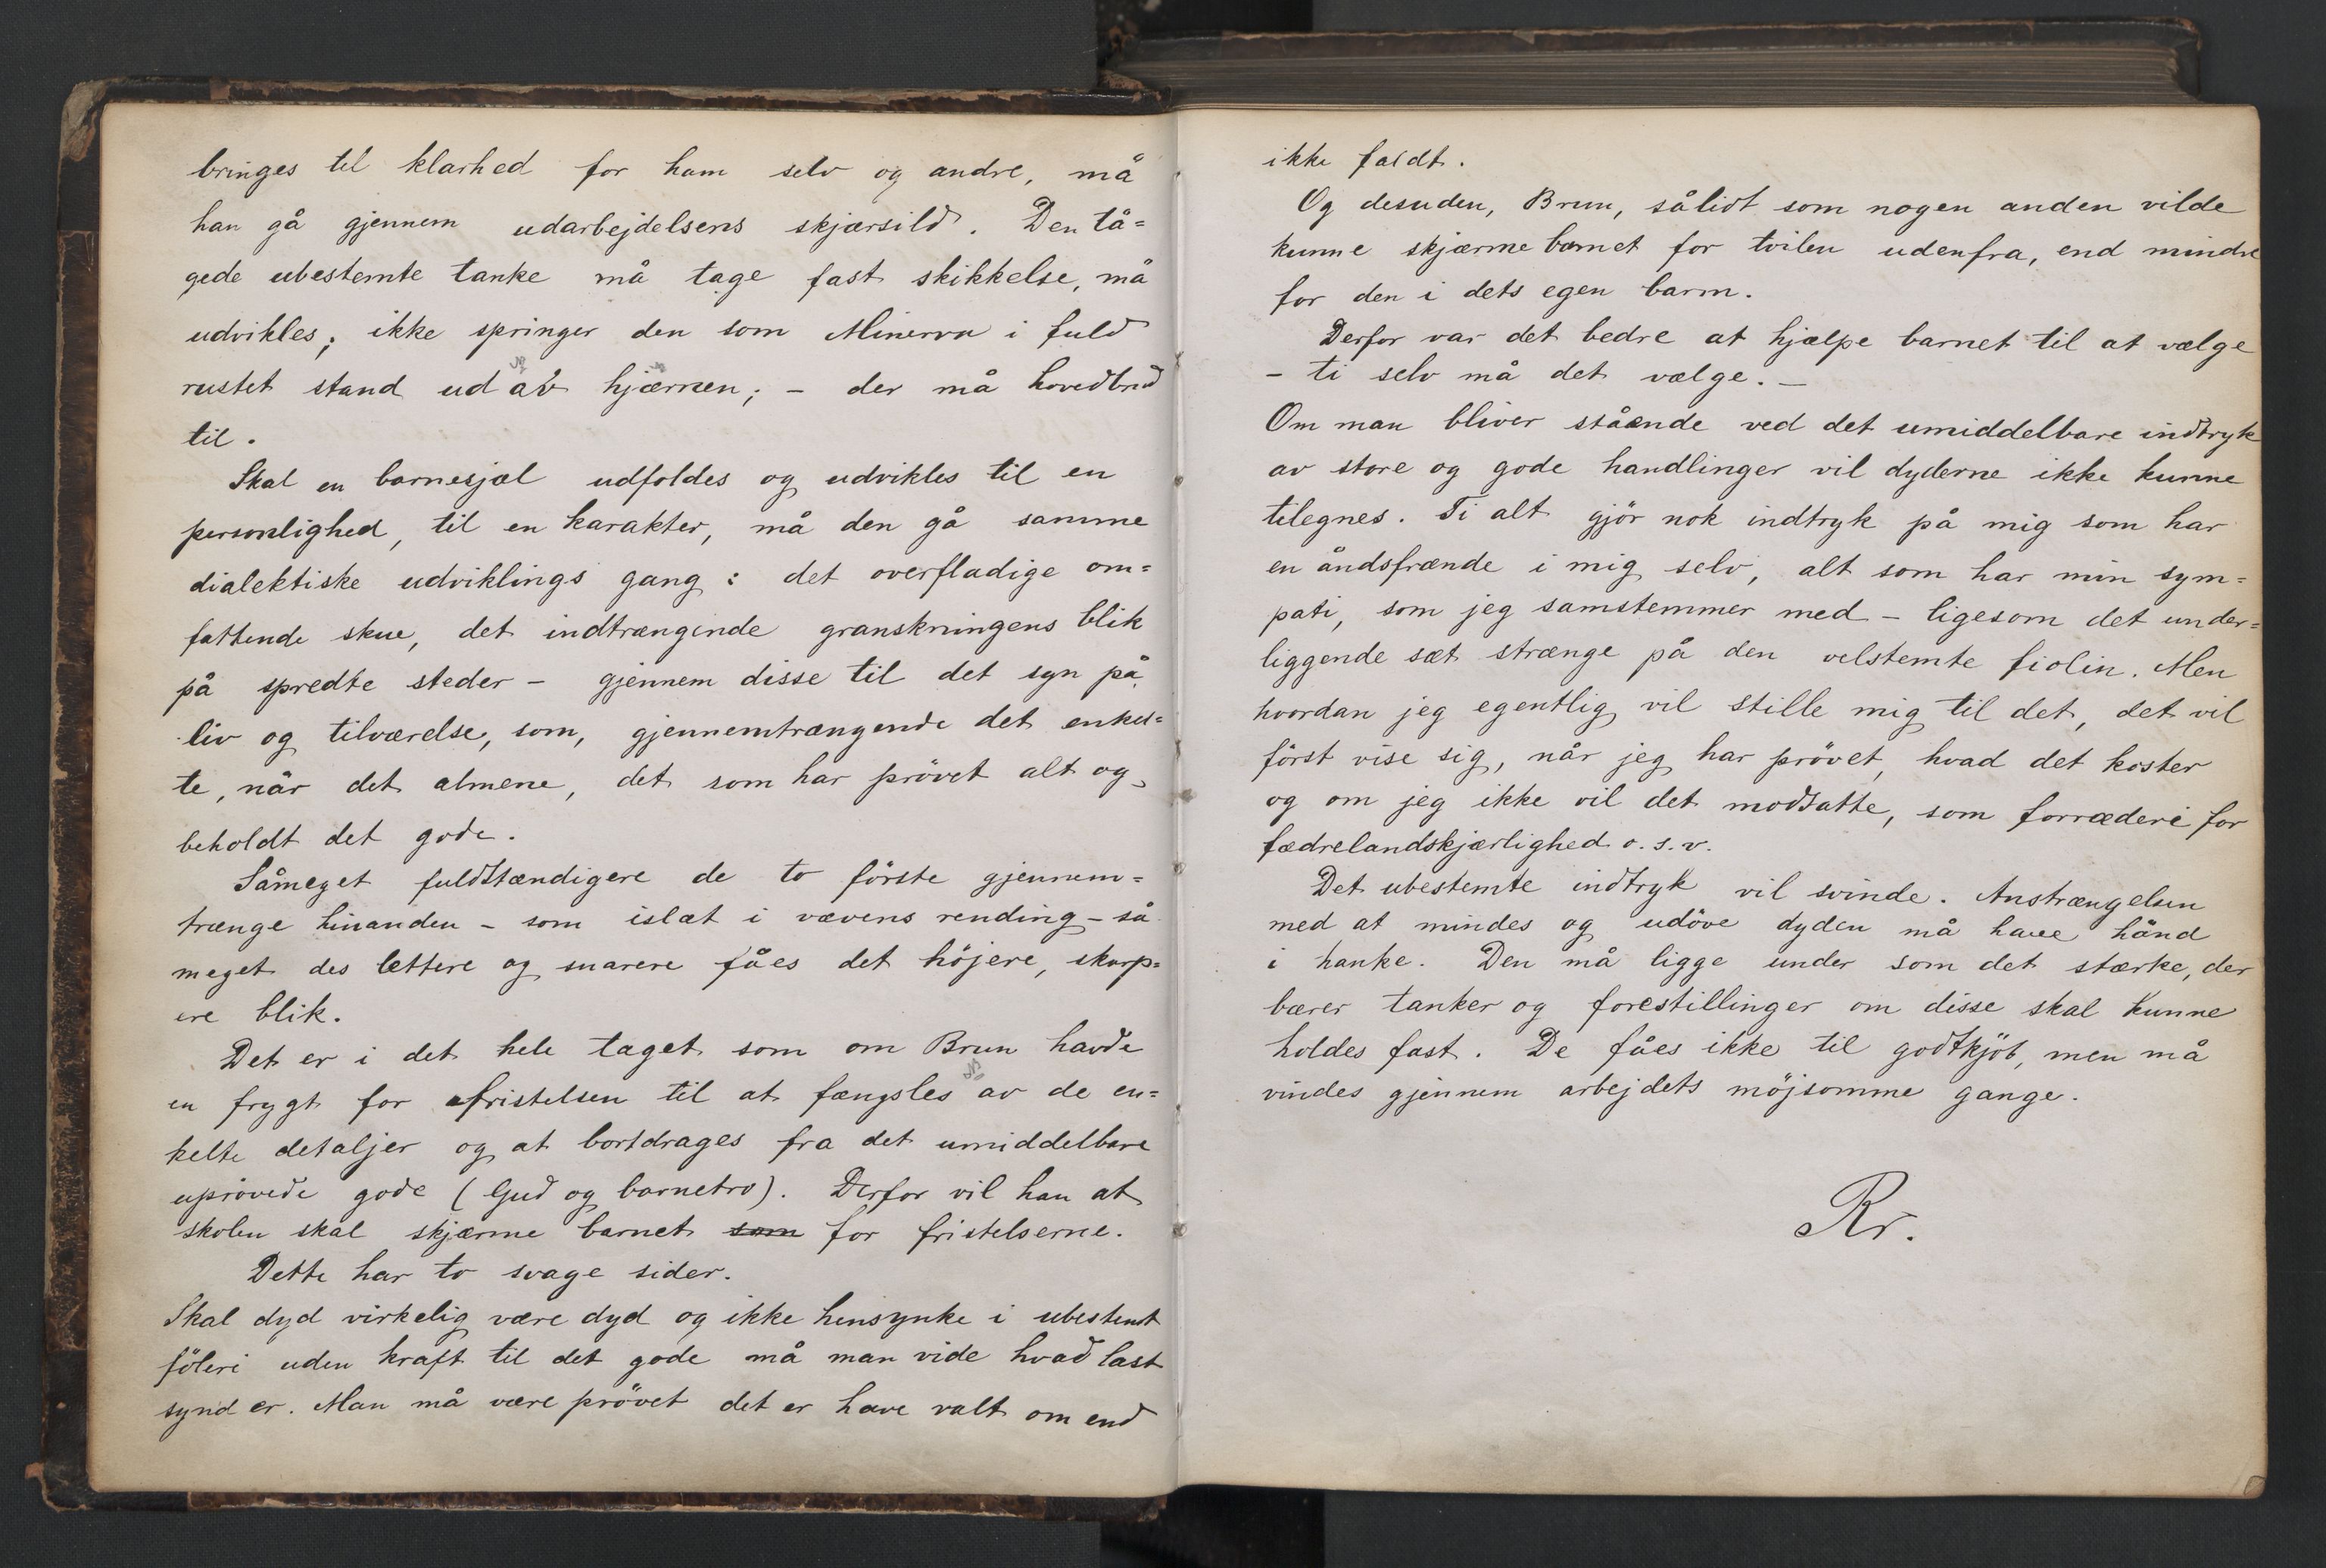 bringes til klarhed for ham selv og andre, må
han gå gjennem udarbejdelsens skjærsild. Den tå=
gede ubestemte tanke må tage fast skikkelse, må
udvikles; ikke springer den som Minerva i fuld
rustet stand ud av hjærnen; - der må hovedbrud
til.
Skal en barnesjæl udfoldes og udvikles til en
personlighed, til en karakter, må den gå samme
dialektiske udviklings gang: det overfladige om=
fattende skue, det indtrængende granskningens blik
på spredte steder - gjennem disse til det syn på
liv og tilværelse, som, gjennemtrængende det enkel=
te, når det almene, det som har prövet alt og
beholdt det gode.
Såmeget fuldstændigere de to förste gjennem=
trænge hinanden - som islæt i vævens rending - så
meget des lettere og snarere fåes det höjere, skarp=
ere blik.
Det er i det hele taget som om Brun havde
en frygt for fristelsen til at fængsles av de en=
kelte detaljer og at bortdrages fra det umiddelbare
uprövede gode (Gud og barnetro). Derfor vil han at
skolen skal skjærme barnet som for fristelserne.
Dette har to svage sider.
Skal dyd virkelig være dyd og ikke hensynke i ubestemt
föleri uden kraft til det gode må man vide hvad last
synd er. Man må være prövet det er have valt om end
ikke faldt.
Og desuden, Brun, sålidt som nogen anden vilde
kunne skjærme barnet for tvilen udenfra, end mindre
for den i dets egen barm.
Derfor var det bedre at hjælpe barnet til at vælge
- ti selv må det vælge. -
Om man bliver stående ved det umiddelbare indtryk
av store og gode handlinger vil dyderne ikke kunne
tilegnes. Ti alt gjör nok indtryk på mig som har
en åndsfrænde i mig selv, alt som har min sym=
pati, som jeg samstemmer med - ligesom det under=
liggende sæt strænge på den velstemte fiolin. Men
hvordan jeg egentlig vil stille mig til det, det vil
först vise sig, når jeg har prövet, hvad det koster
og om jeg ikke vil det modsatte, som forræderi for
fædrelandskjærlighed o. s. v.
Det ubestemte indtryk vil svinde. Anstrængelsen
med at mindes og udöve dyden må have hånd
i hanke. Den må ligge under som det stærke, der
bærer tanker og forestillinger om disse skal kunne
holdes fast. De fåes ikke til godtkjöb, men må
vindes gjennem arbejdets möjsomme gange.
Rr.